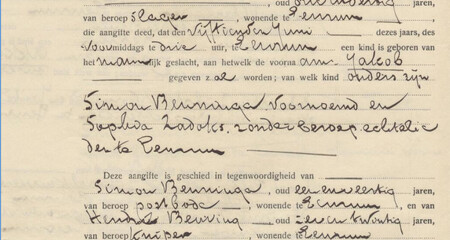 oud jaren,
van beroep slager, wonende te Leusum
die aangifte deed, dat den vijftienden Juni dezes jaars, des
voormiddags te drie uur, te een kind is geboren van
het mannelijk geslacht, aan hetwelk de voorna am Jakob
gegeven zal worden; van welk kind ouders zijn
Simon Benninga, voornoemd en
Sophia Zadoks, zonder beroep echtelie
den te
Deze aangifte is geschied in tegenwoordigheid van
Simon Benninga, oud een en veertig jaren,
van beroep postbode, wonende te en van
oud zes en twintig jaren,
van beroep kuiper, wonende te